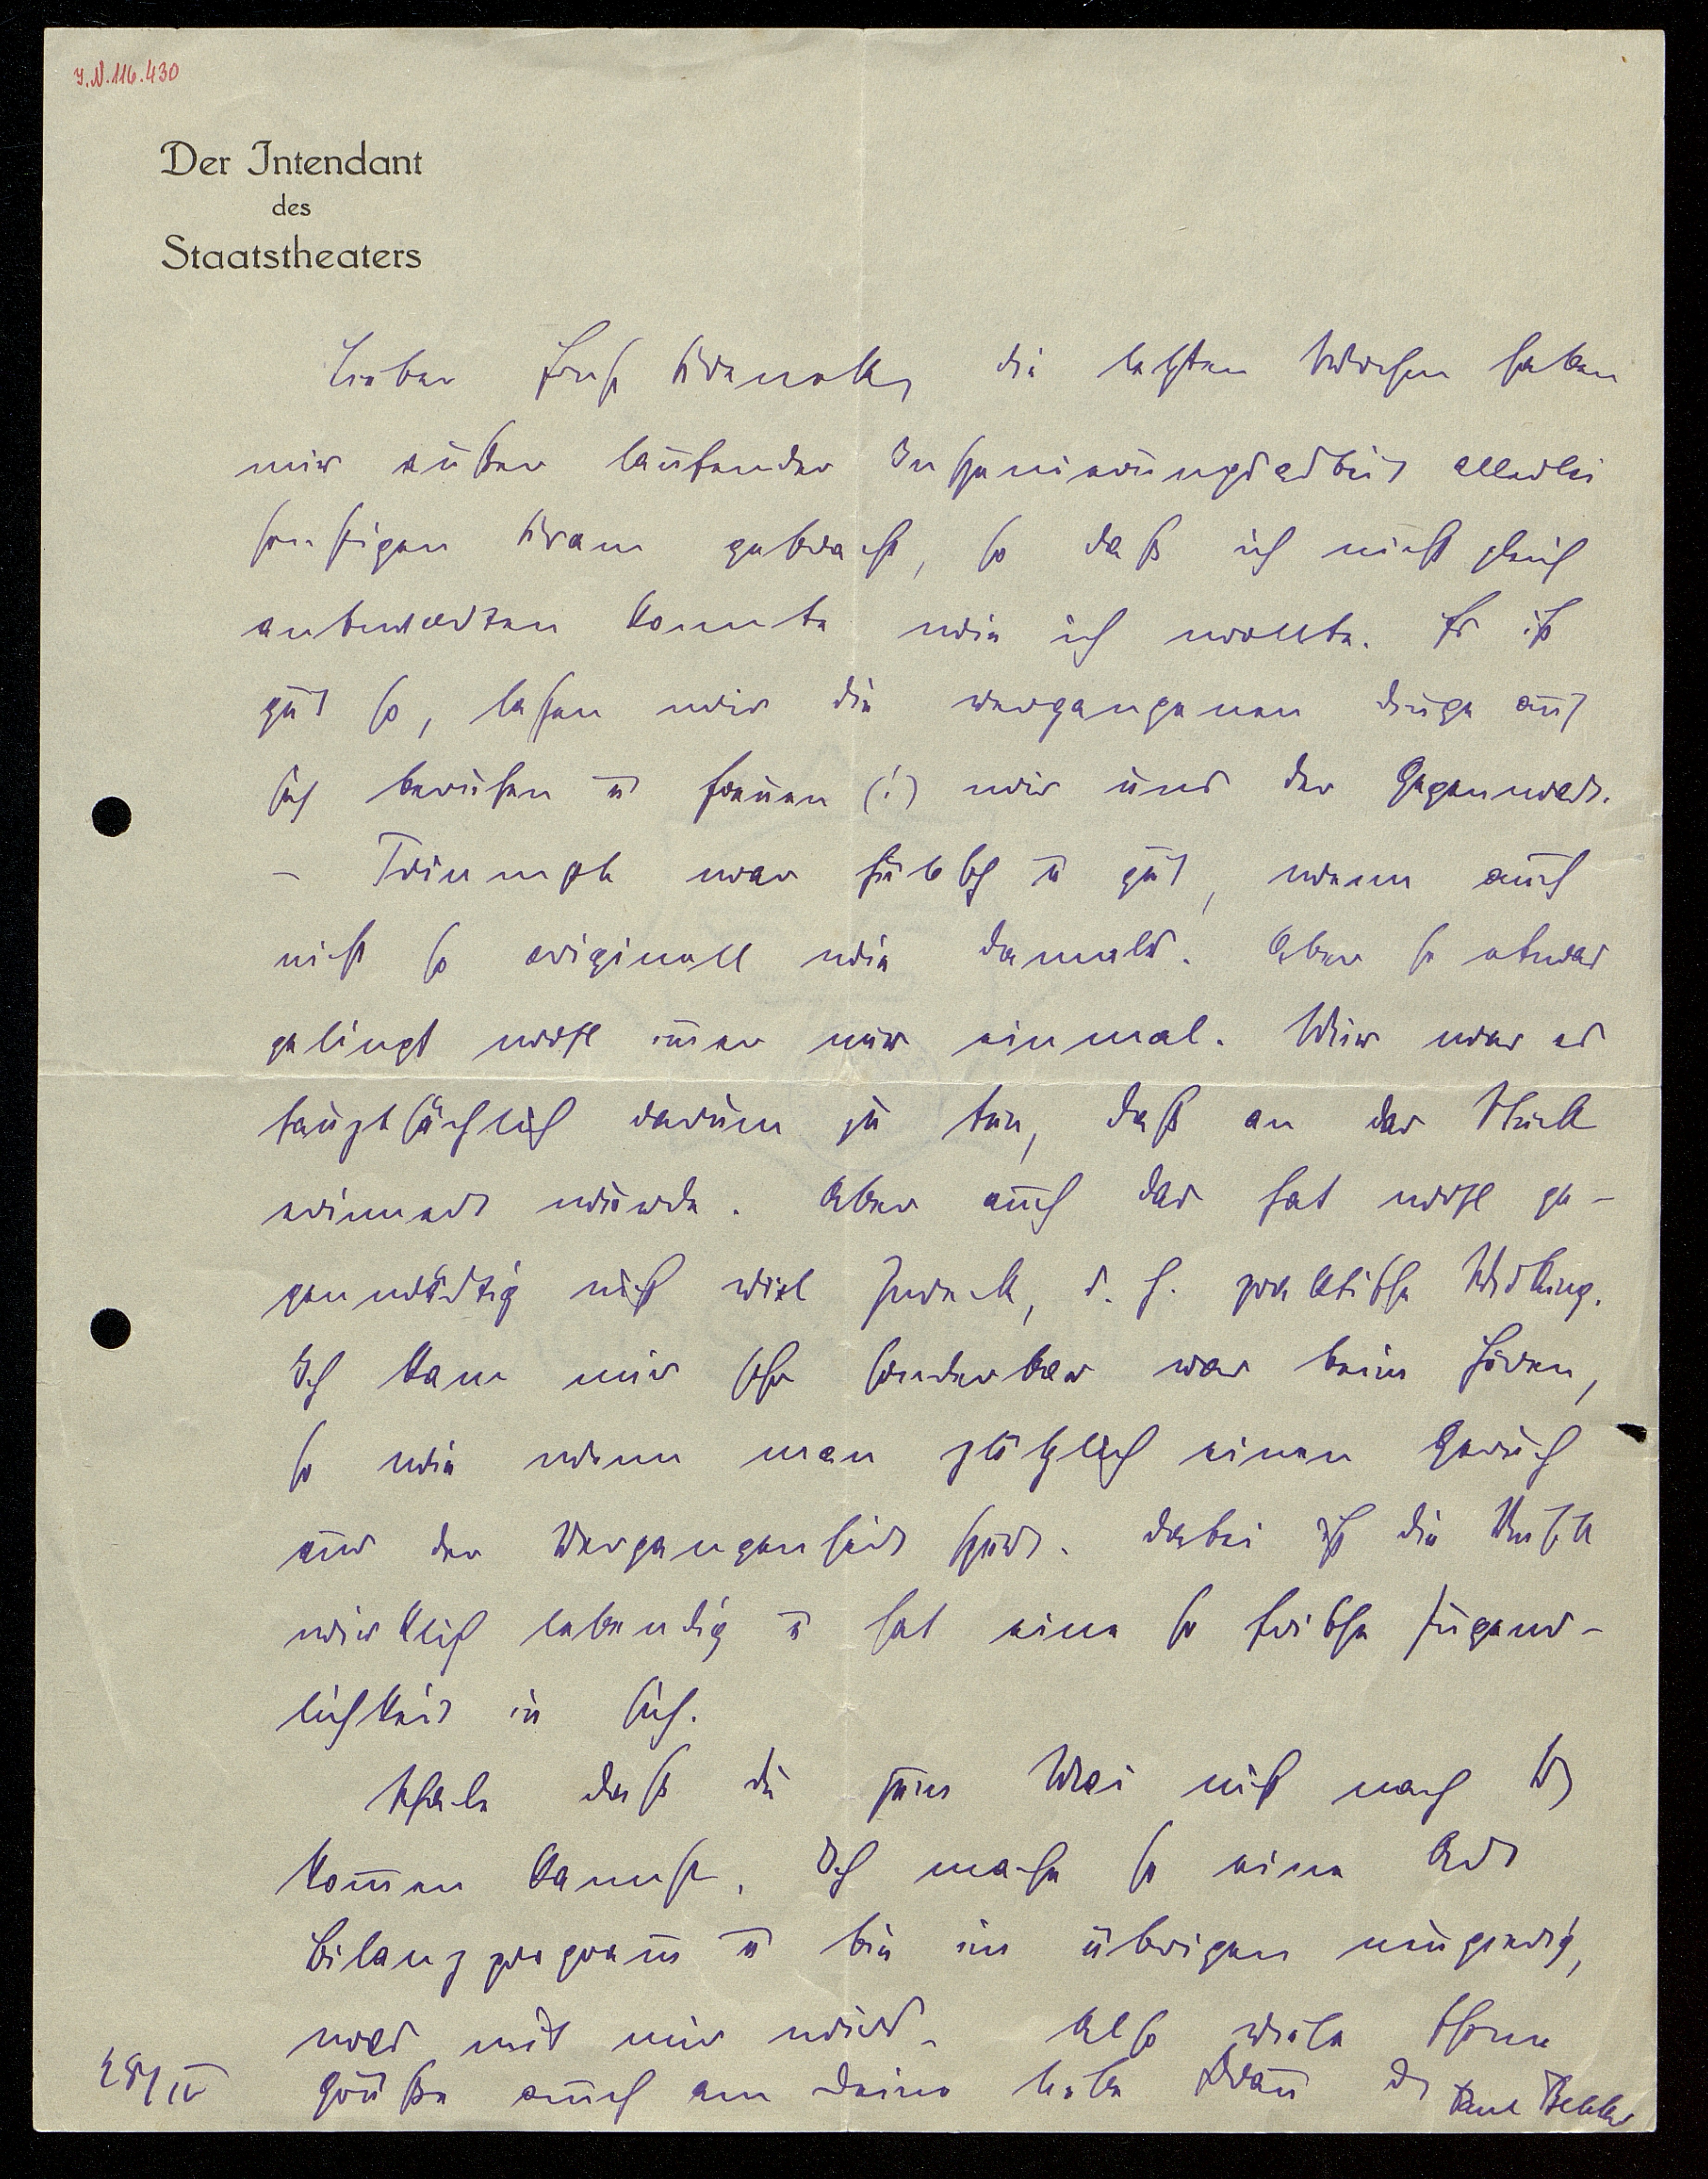 I.N. 116.430
Der Intendant
des
Staatstheaters
Lieber Ernst Krenek, die letzten Wochen haben
mir außer laufender Inszenierungsarbeit allerlei
sonstigen Kram gebracht, so daß ich nicht gleich
antworten konnte wie ich wollte. Es ist
gut so, lassen wir die vergangenen Dinge auf
sich beruhen u freuen (!) wir uns der Gegenwart.
– Triumph war hübsch u gut, wenn auch
nicht so originell wie damals. Aber so etwas
gelingt wohl im̄er nur einmal. Mir war es
hauptsächlich darum zu tun, daß an das Stück
erinnert würde. Aber auch das hat wohl ge-
genwärtig nicht viel Zweck, d. h. praktische Wirkung.
Ich kam mir sehr sonderbar vor beim Hören,
so wie wenn man plötzlich einen Geruch
aus der Vergangenheit spürt. Dabei ist die Musik
wirklich lebendig u hat eine so frische Jugend-
lichkeit in sich.
Schade daß du zum Mai nicht nach W
kom̄en kannst. Ich mache so eine Art
Bilanzprogram̄ u bin im übrigen neugierig,
was mit mir wird. Also viele schöne
Grüße auch an deine liebe Frau Dr Paul Bekker
28/IV